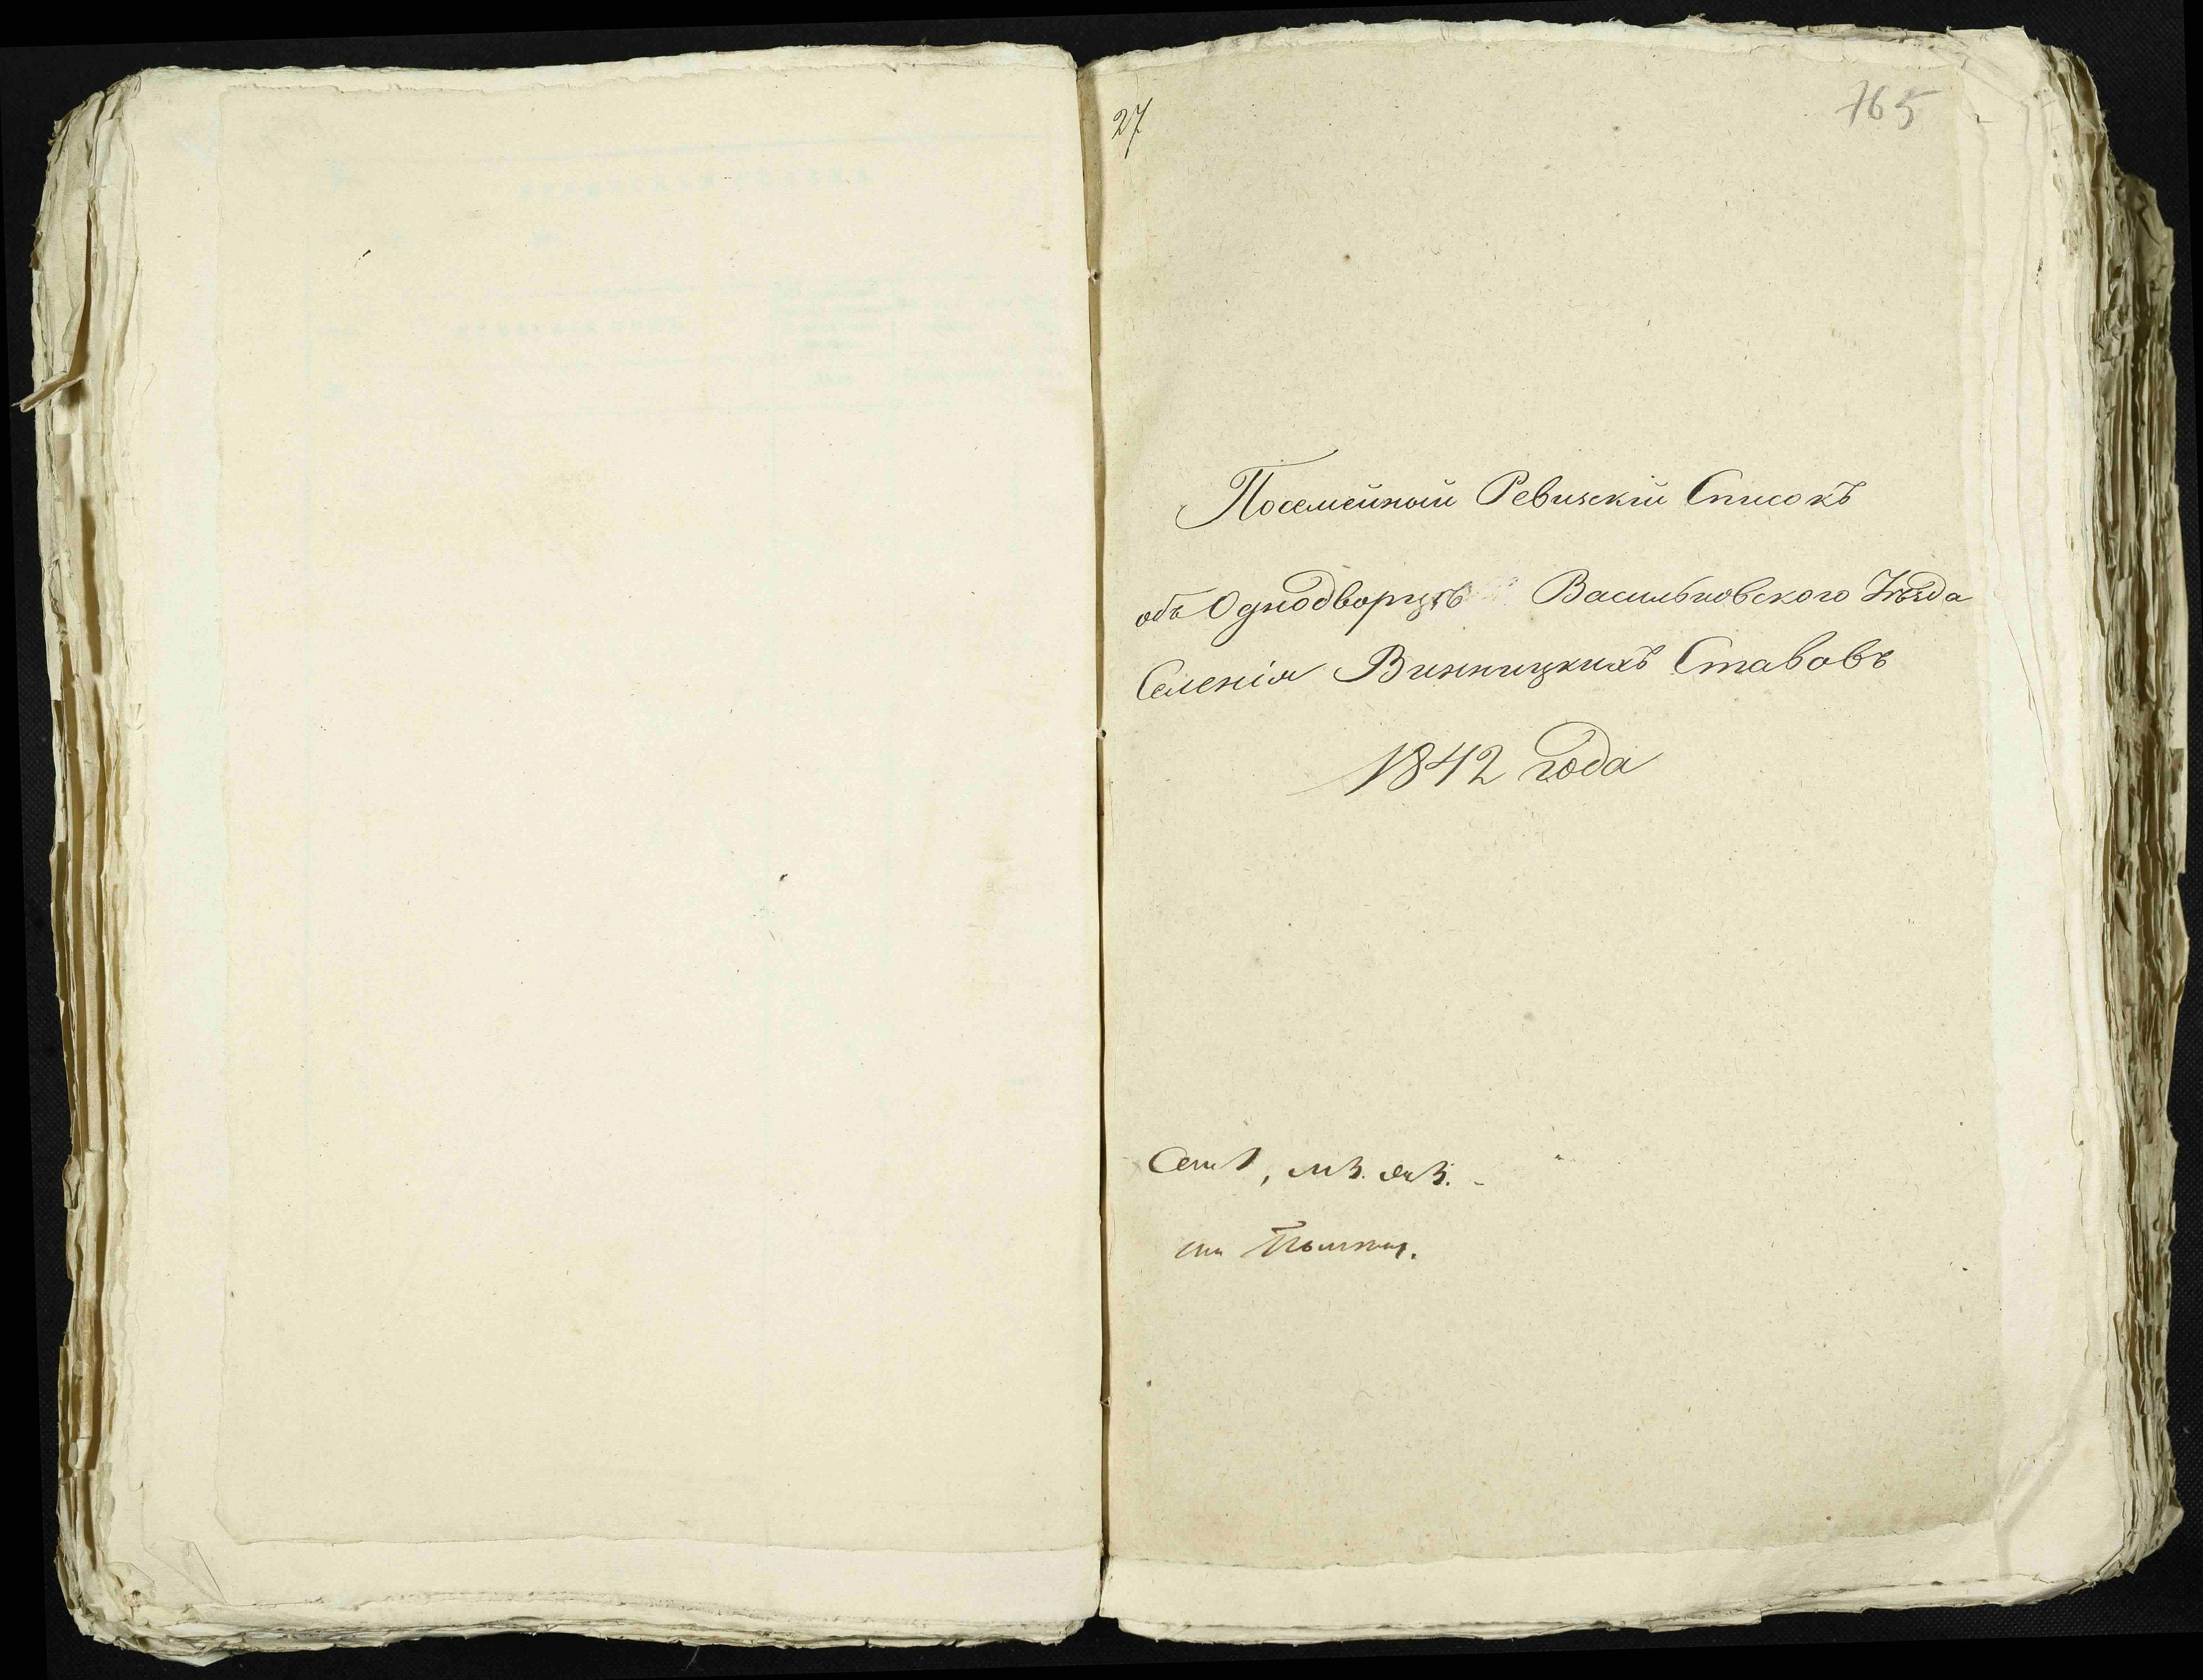 27
765
Посемейный Ревизскій Списокъ
объ Однодворцѣ Васильковского Уѣзда
Селенія Винницкихъ Ставовъ
1842 года
Сем 1, м 3. ж 3.